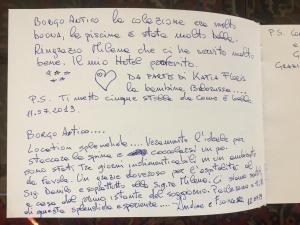 BORGO ANTICO la colazione era molto
buona, la piscina è stata molto bella.
Ringrazio Milena che ci ha servito molto
bene. Il mio Hotel preferito.
DA PARTE DI KATIA
la bambina
P.S. Ti metto cinque stelle da come è bello
11.07.2019
BORGO ANTICO....
Location splendida.... Veramente l'ideale per
staccare la spina e coccolarsi un po'
sono stati tre giorni indimenticabili in un ambiente
da favola. Un grazie doveroso per l'ospitalità al
Sig. Danilo e soprattutto alla Sig.ra Milena. Ci siamo sentiti
a casa dal primo istante del soggiorno.
di questa splendida esperienza....
P.S.